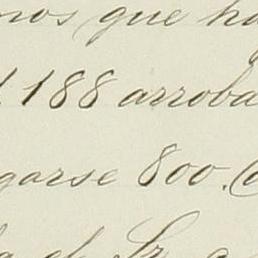 nos que ha
188 arroba
garse 800.
de Sr.